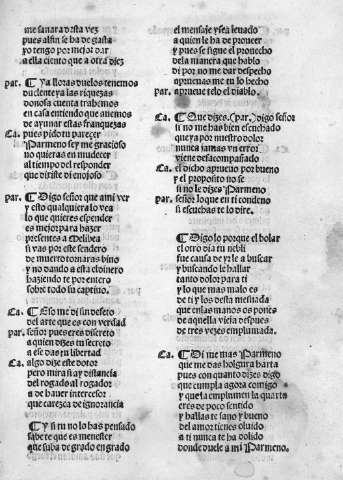 me sanara desta vez
pues al fin se ha de gasta
yo tengo por mejor dar
a ella ciento que a otra diez
par. ¶ Ya lloras duelos tenemos
duelente ya las riquezas
donosa cuenta trabemos
en casa entiendo que auemos
de ayunar estas franquezas
Ca. pues pido tu pareçer
Parmeno sey me gracioso
no quieras en mudecer
al tiempo del responder
que diriste di enojoso
par. ¶ Digo señor que a mi ver
y esto qualquiera lo vea
lo que quieres espender
es mejor para hazer
presentes a Melibea
si vas por este sendero
de muerto tornaras biuo
y no dando a esta
haziendo te por entero
sobre todo su captiuo.
Ca. ¶ Eso me di sin defeto
del arte que es con verdad
par. señor pues eres discreto
a quien dizes tu secreto
a ese das tu libertad
Ca. algo dize este dotor
pero mira si ay distancia
del rogado al rogador
a de hauer intercesor
que carezca de ignorancia
¶ Y si tu no lo has pensado
sabete que es menester
que suba de grado en grado
el mensaje y sea leuado
a quien le ha de proueer
y pues se sigue el prouecho
de la manera que hablo
di por no me dar despecho
aprueuas me tu lo hecho
par. aprueue telo el diablo.
Ca. ¶ Que dizes. (par.) digo señor
si no me has bien escuchado
que ya por nuestro dolor
nunca jamas vn error
viene desacompañado
Ca. el dicho aprueuo por bueno
y el proposito no se
si no le dizes Parmeno
par. señor lo que en ti condeno
si escuchas te lo dire.
¶ Digo lo porque el bolar
el otro dia tu nebli
fue causa de yr le a buscar
y buscando le hallar
tanto dolor para ti
y lo que mas malo es
de ti y los desta mesnada
que en las manos os pones
de aquella vieja despues
de tres vezes emplumada.
Ca. ¶ Di me mas Parmeno
que me das holgura harta
pues con quanto dizes digo
que cumpla agora comigo
y que la emplumen la quarta
eres de poco sentido
y hallas te sano y bueno
del amor tienes oluido
a ti nunca te ha dolido
donde duele a mi Parmeno.